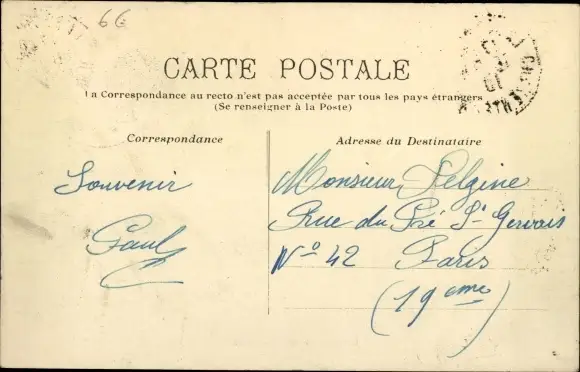 66
CARTE POSTALE
La Correspondance au recto n'est pas acceptée par tous les pays étrangers
(Se renseigner à la Poste)
Correspondance
Adresse du Destinataire
Souvenir
Paul
Monsieur Pelgine
Rue du Pré St Gervais
N° 42 Paris
(19eme)